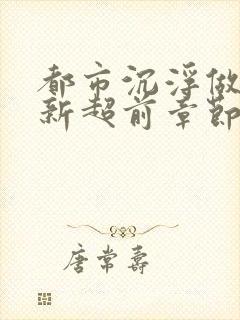 都市沉浮做
新超前章節
唐常壽